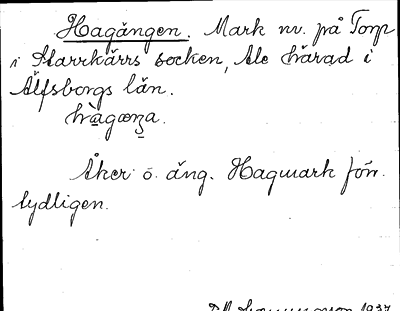 Hagängen. Mark nv. på Torp
i Starrkärrs socken, Ale härad i
Älfsborgs län.
hàgæŋa.
Åker o. äng. Hagmark för.
tydligen.
1937